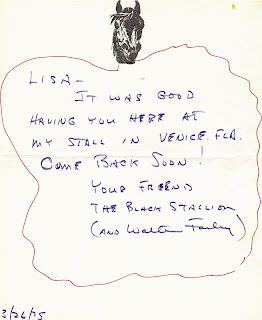 LISA—
IT WAS GOOD
HAVING YOU HERE AT
MY STALL IN VENICE, FLA.
COME BACK SOON!
YOUR FRIEND
THE BLACK STALLION
(AND WALTER FARLEY)
2/26/75